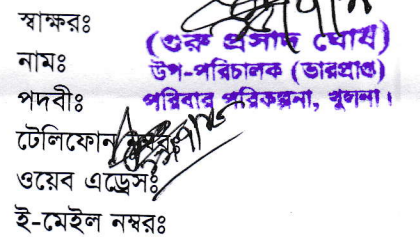 স্বাক্ষরঃ
নামঃ (গুরু প্রসাদ ঘোষ)
উপ-পরিচালক (ভারপ্রাপ্ত)
পদবীঃ পরিবার পরিকল্পনা, খুলনা।
টেলিফোন
ওয়েব এড্রেসঃ
ই-মেইল নম্বরঃ